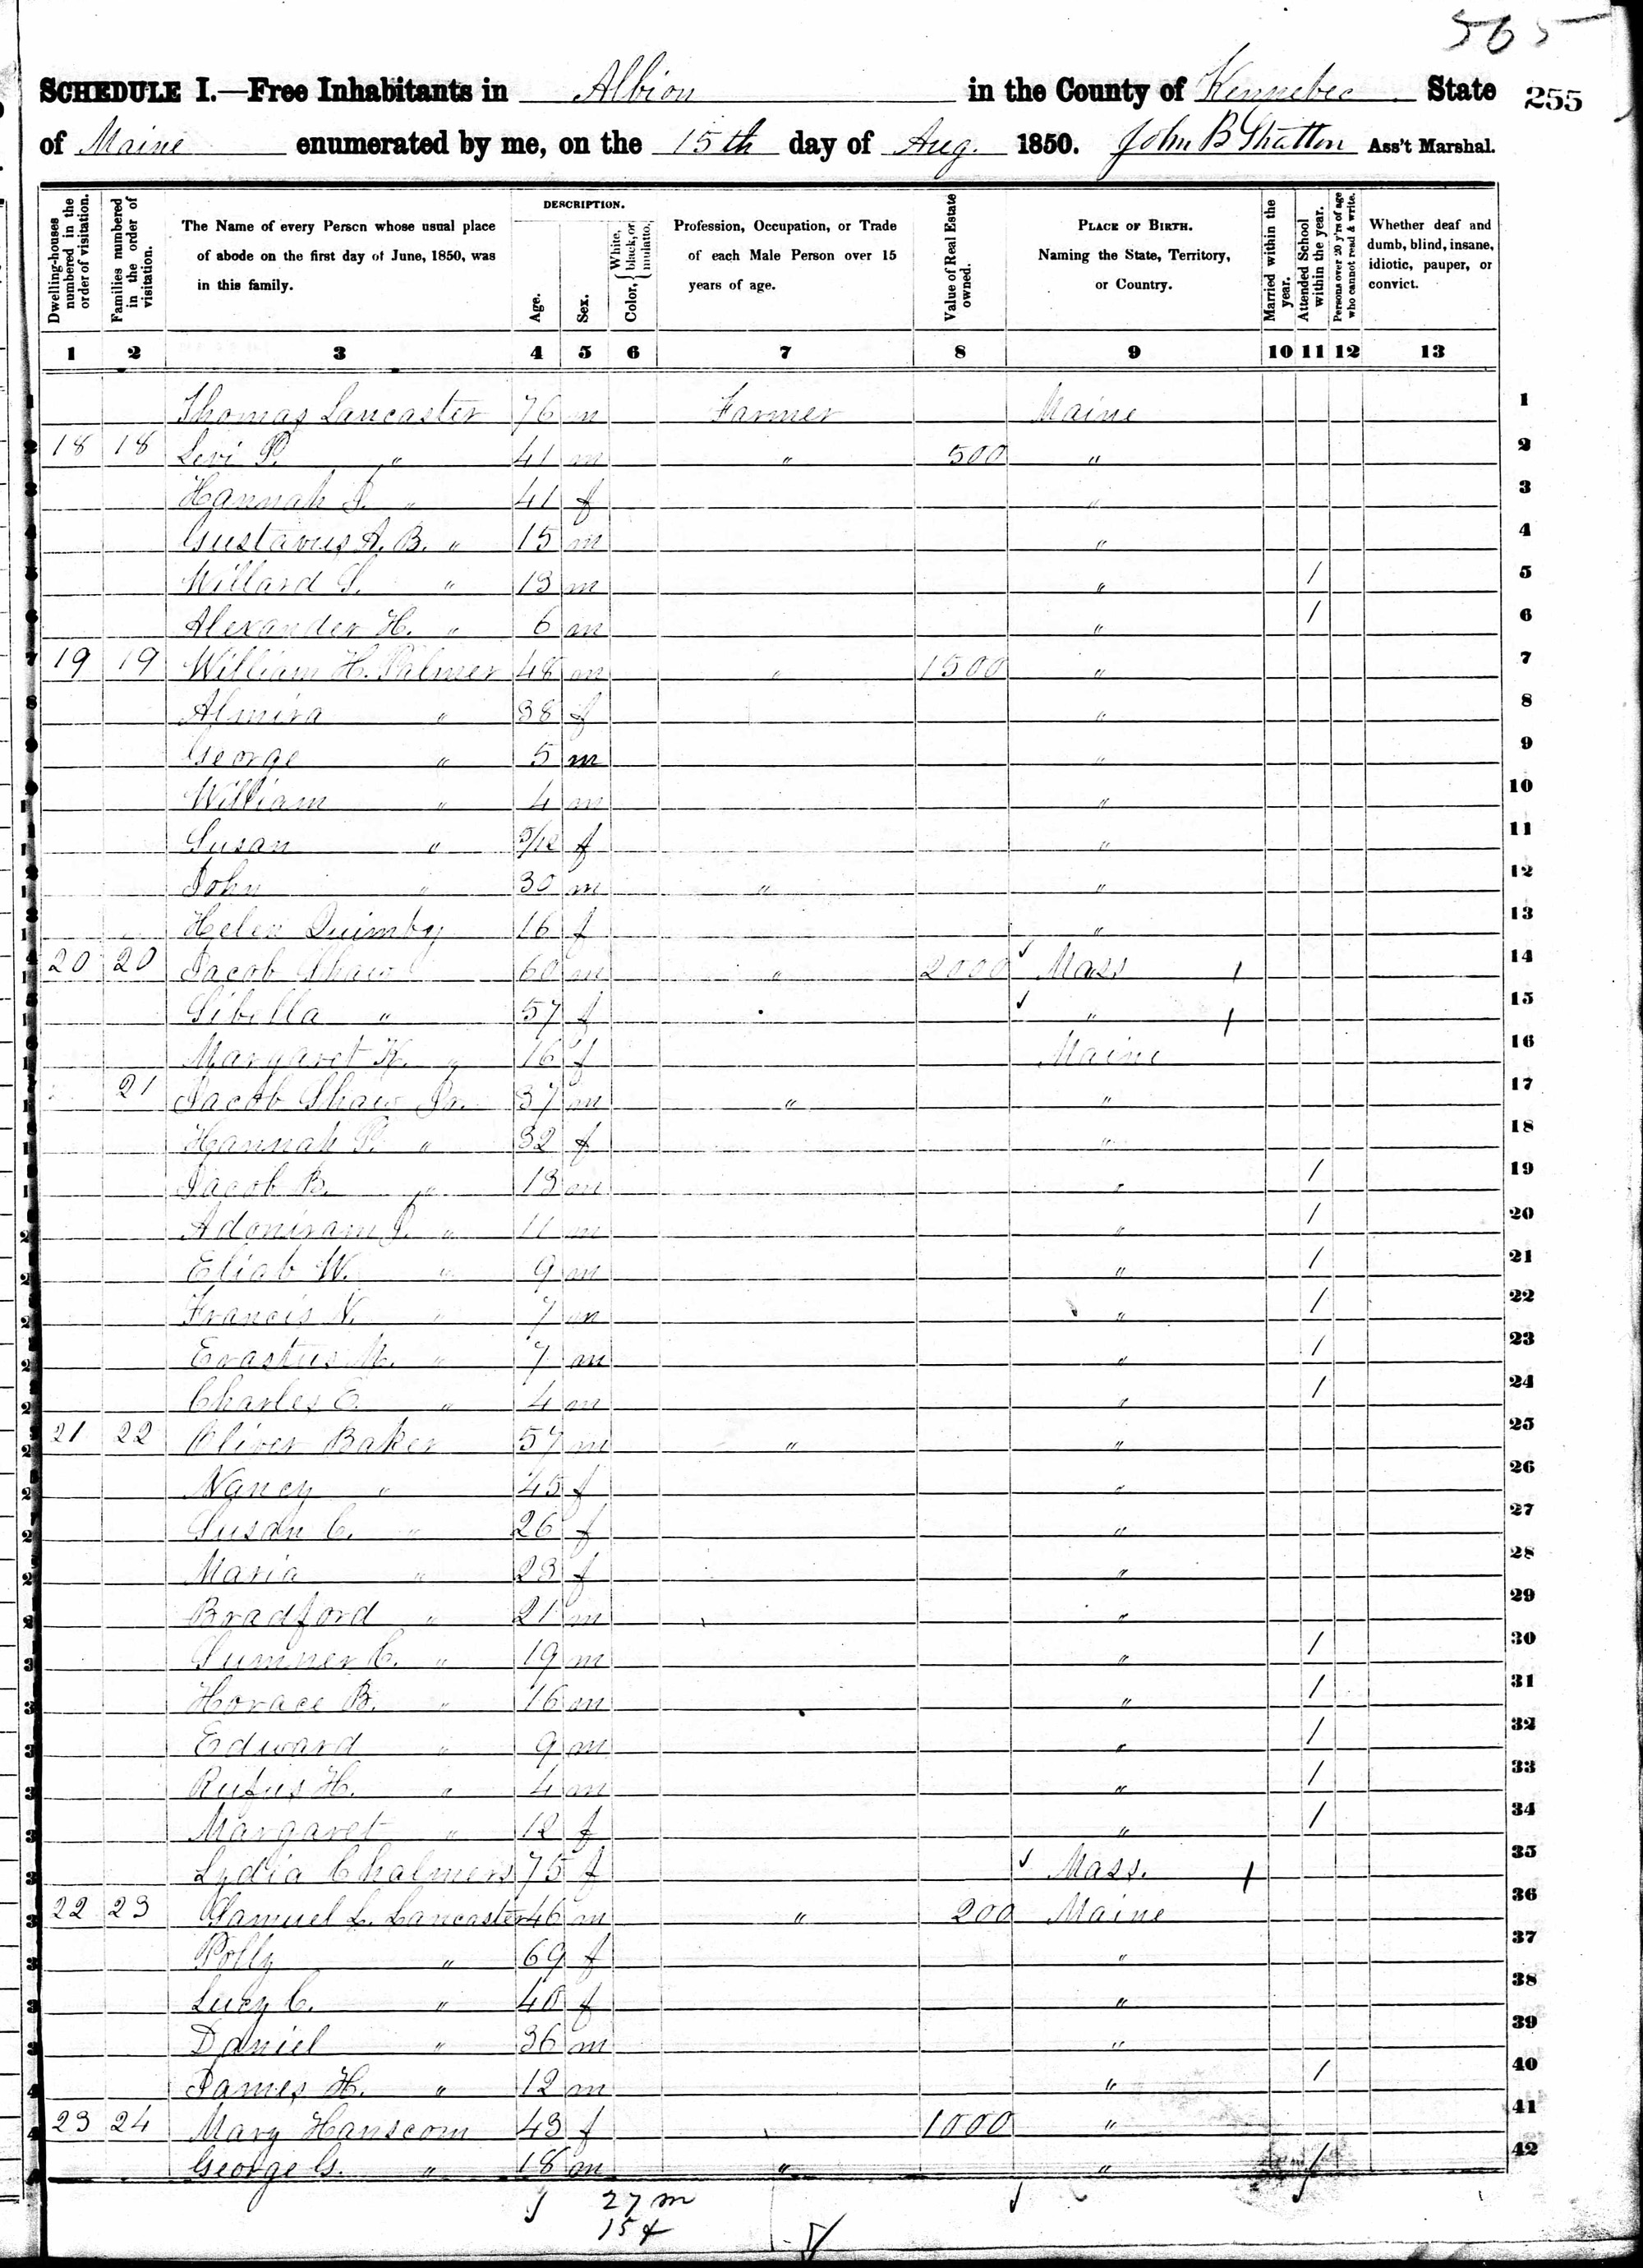 565
SCHEDULE I.—Free Inhabitants in Albion in the County of Kennebec State 255
of Maine enumerated by me, on the 15th day of Aug. 1850. John B Shatton Ass't Marshal.
Dwelling-houses numbered in the order of visitation.
Families numbered in the order of visitation.
The Name of every Person whose usual place of abode on the first day of June, 1850, was in this family.
DESCRIPTION.
Age.
Sex.
Color, { White, black, or mulatto.
Profession, Occupation, or Trade of each Male Person over 15 years of age.
Value of Real Estate owned.
PLACE OF BIRTH. Naming the State, Territory, or Country.
Married within the year.
Attended School within the year.
Persons over 20 y'rs of age who cannot read & write.
Whether deaf and dumb, blind, insane, idiotic, pauper, or convict.
1 2 3 4 5 6 7 8 9 10 11 12 13
Thomas Lancaster 76 m Farmer Maine 1
18 18 Levi P. " 41 m " 500 " 2
Hannah J. " 41 f " 3
Gustavus A. B. " 15 m " 4
Willard S. " 13 m " / 5
Alexander H. " 6 m " / 6
19 19 William H. Palmer 48 m " 1500 " 7
Almira " 38 f " 8
George " 5 m " 9
William " 4 m " 10
Susan " /12 f " 11
John " 30 m " " 12
Helen Quimby 16 f " 13
20 20 Jacob Shaw 60 m " 2000 Mass 14
Sibella " 57 f " 15
Margaret H. " 16 f Maine 16
21 Jacob Shaw Jr. 37 m " " 17
Hannah P. " 32 f " 18
Jacob B. " 13 m " / 19
Adoniram J. " 11 m " / 20
Eliab W. " 9 m " / 21
Francis N. " 7 m " / 22
Erastus M. " 7 m " / 23
Charles E. " 4 m " / 24
21 22 Oliver Baker 57 m " " 25
Nancy " 45 f " 26
Susan C. " 26 f " 27
Maria " 23 f " 28
Bradford " 21 m " 29
Sumner C. " 19 m " / 30
Horace B. " 16 m " / 31
Edward " 9 m " / 32
Rufus H. " 4 m " / 33
Margaret " 12 f " / 34
Lydia Chalmers 75 f Mass. 35
22 23 Samuel L. Lancaster 46 m " 200 Maine 36
Polly " 69 f " 37
Lucy C. " 40 f " 38
Daniel " 36 m " 39
James H. " 12 m " / 40
23 24 Mary Hanscom 43 f 1000 " 41
George G. " 18 m " " / 42
27 m
15 f